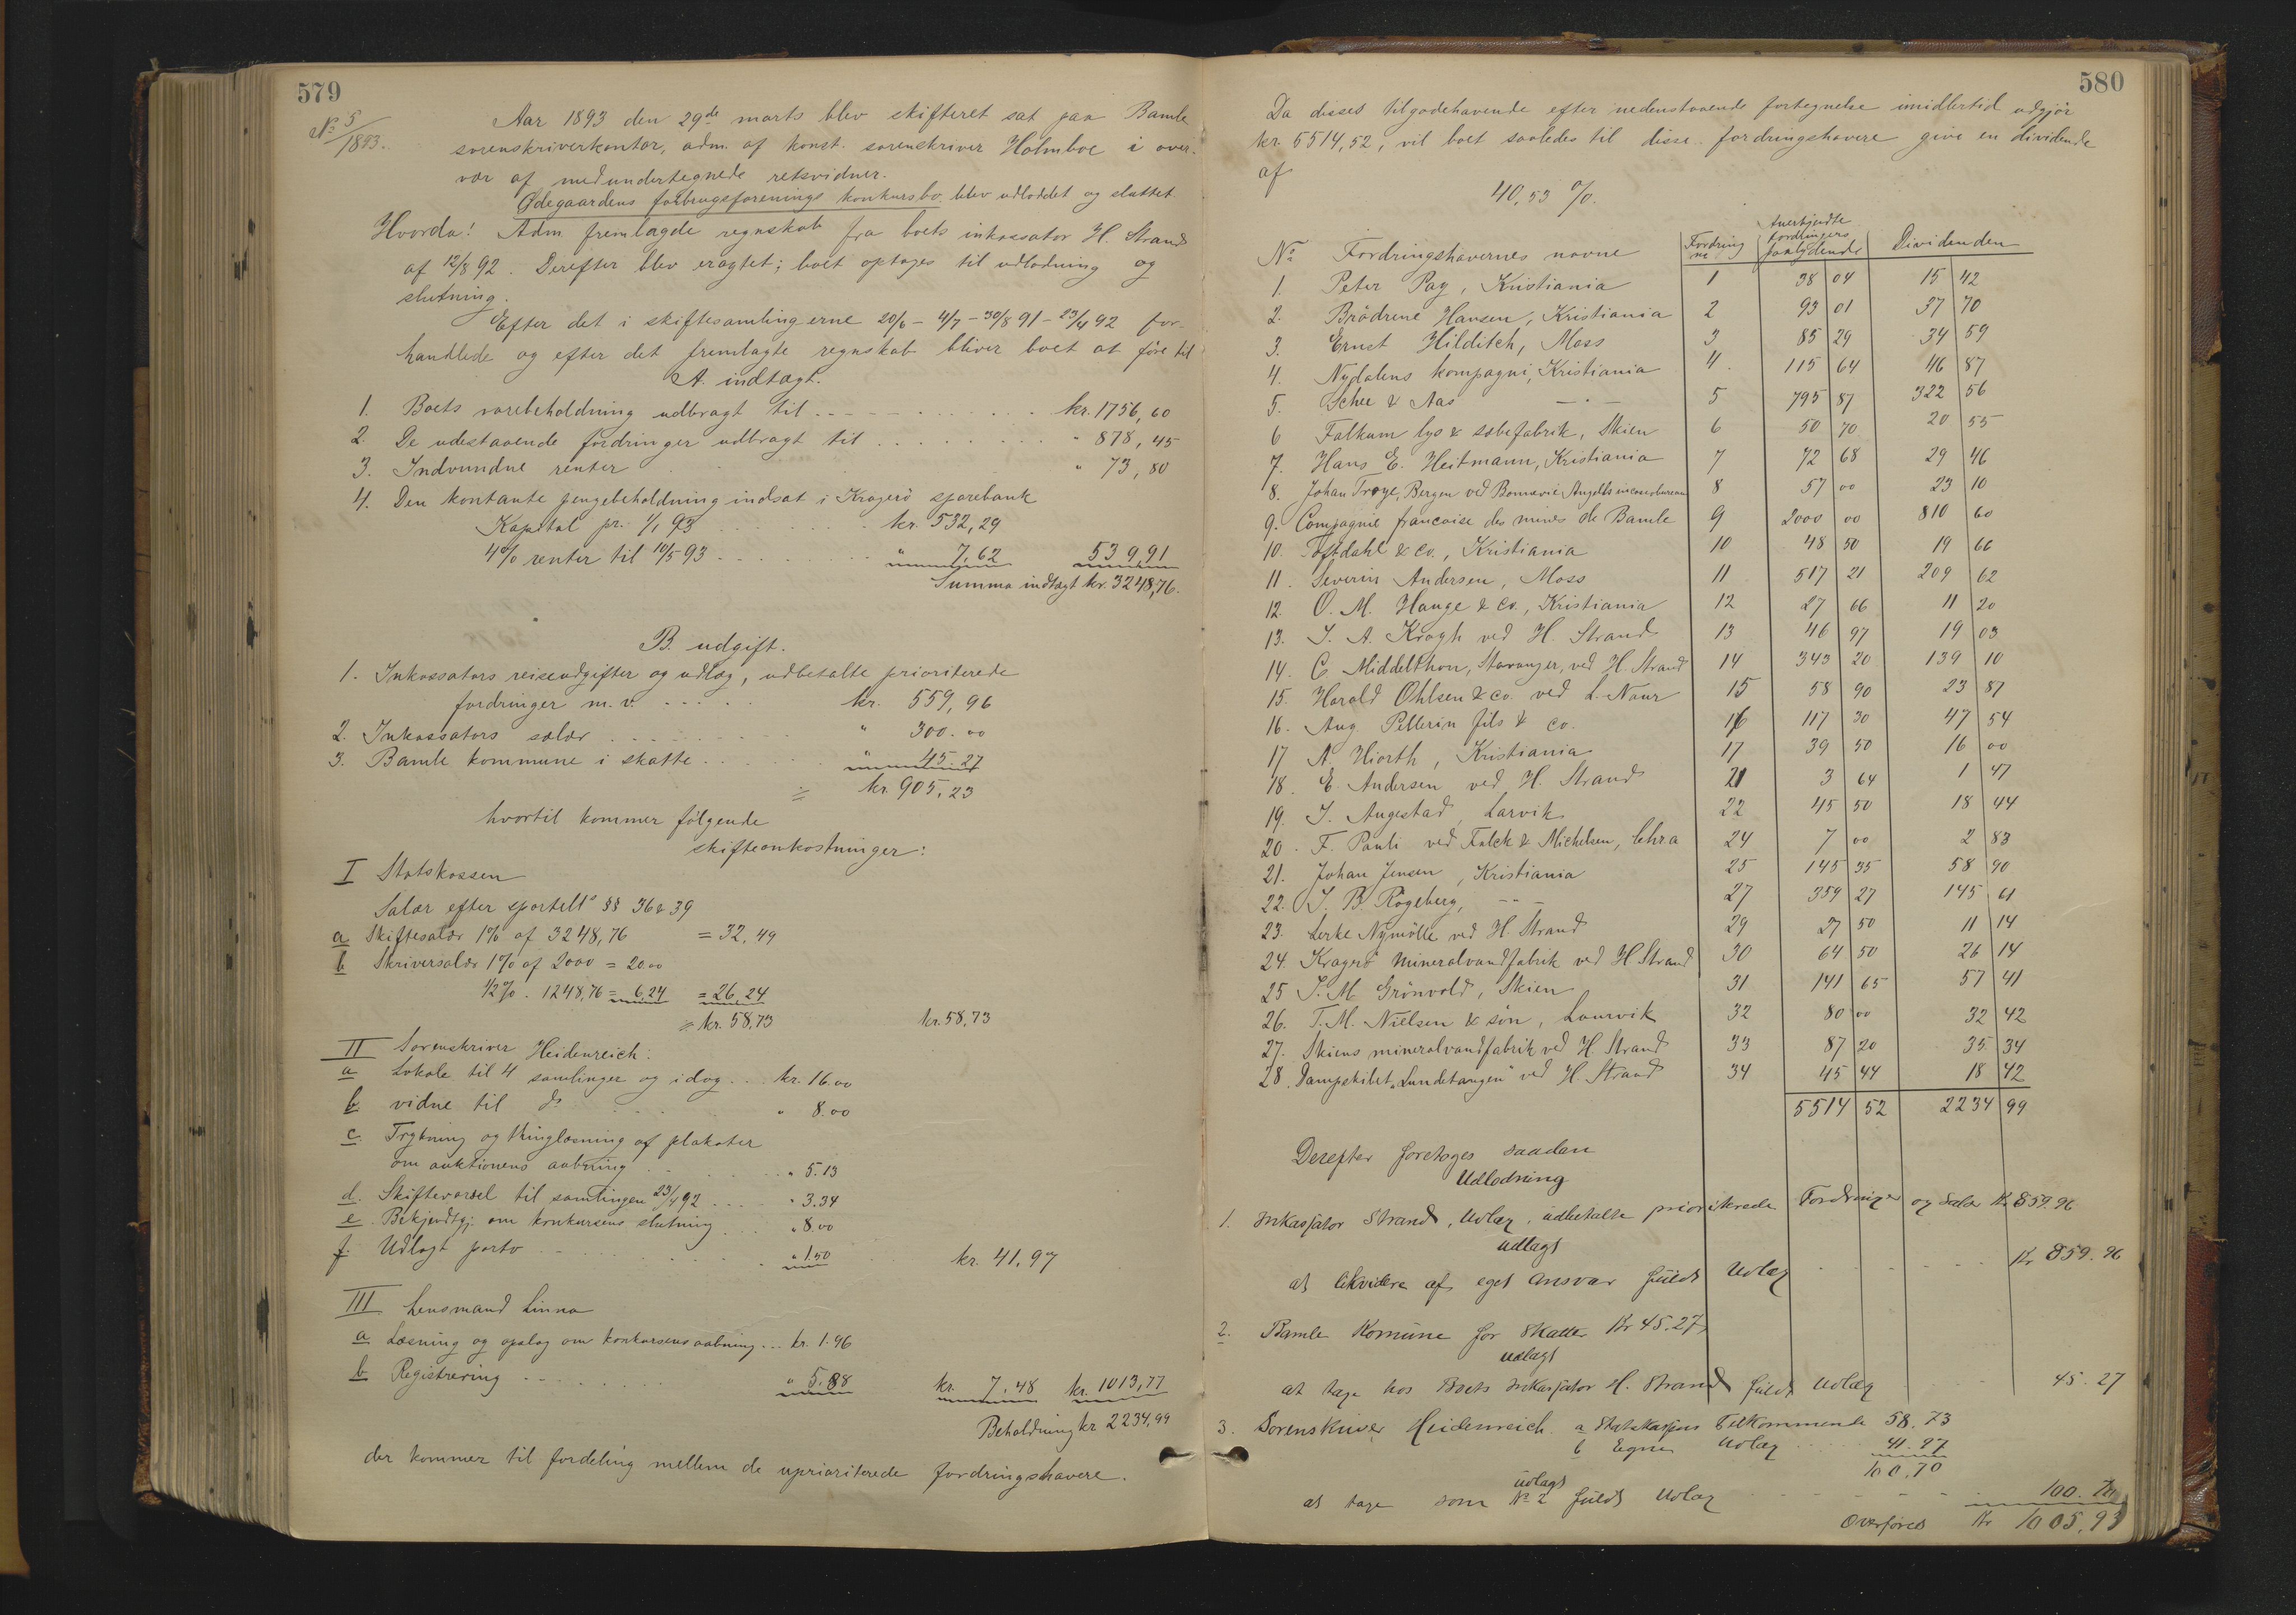 579
No 5/1893.
Aar 1893 den 29de marts blev skifteret sat paa Bamle
sorenskriverkontor, adm. af konst. sorenskriver Holmboe i over-
vær af medundertegnede retsvidner.
Ødegaardens forbrugsforenings konkursbo blev udloddet og sluttet.
Hvorda! Adm. fremlagde regnskab fra boets inkassator H. Strand
af 12/8 92. Derefter blev eragtet; boet optages til udlodning og
slutning.
Efter det i skiftesamlingerne 20/6 - 4/7 - 30/8 91 - 23/4 92 for-
handlede og efter det fremlagte regnskab bliver boet at føre til
A. indtægt.
1. Boets varebeholdning udbragt til . . . kr. 1756,60
2. De udestaaende fordringer udbragt til . . . " 878,45
3. Indvundne renter . . . " 73,80
4. Den kontante pengebeholdning indsat i Kragerö sparebank
Kapital pr. 1/1 93 . . . kr. 532,29
4% renter til 10/5 93 . . . " 7,62 539,91
Summa indtægt kr. 3248,76.
B. udgift.
1. Inkassators reiseudgifter og udlæg, udbetalte prioriterede
fordringer m.v. . . . kr. 559,96
2. Inkassators salær . . . " 300.00
3. Bamle kommune i skatte . . . " 45.27
÷ kr. 905,23
hvortil kommer fölgende
skifteomkostninger:
I Statskassen
Salær efter sportell° §§ 36 & 39
a Skiftesalær 1% af 3248,76 = 32,49
b Skriversalær 1% af 2000 = 20.00
1/2% . 1248,76 = 6,24 = 26,24
kr. 58,73 kr. 58,73
II Sorenskriver Heidenreich:
a Lokale til 4 samlinger og idag . . . kr. 16.00
b vidne til do . . . " 8.00
c. Trykning og thinglæsning af plakater
om auktionens aabning . . . " 5.13
d. Skiftevarsel til samlingen 23/4 92 . . . " 3.34
e. Bekjendtgj. om konkursens slutning . . . " 8.00
f. Udlagt porto . . . " 1.50 kr. 41,97
III Lensmand Linna
a Læsning og opslag om konkursens aabning . . . kr. 1.96
b Registrering . . . " 5.88 kr. 7,48 kr. 1013,77
Beholdning kr 2234,99
der kommer til fordeling mellem de uprioriterede fordringshavere.
580
Da disses tilgodehavende efter nedenstaaende fortegnelse imidlertid udgjör
kr. 5514,52, vil boet saaledes til disse fordringshavere give en dividende
af
40,53 %.
No Fordringshavernes navne Fordring no Anerkjendte fordringers paalydende Dividenden
1. Peter Pay, Kristiania 1 38 04 15 42
2. Brödrene Hansen, Kristiania 2 93 01 37 70
3. Ernst Hilditch, Moss 3 85 29 34 59
4. Nydalens kompagni, Kristiania 4 115 64 46 87
5. Schee & Aas — " — 5 795 87 322 56
6 Falkum lys & sæbefabrik, Skien 6 50 70 20 55
7. Hans E. Heitmann, Kristiania 7 72 68 29 46
8. Johan Troye, Bergen ved Bonnevie Angells incassobureau 8 57 00 23 10
9. Compagnie francaise des mines de Bamle 9 2000 00 810 60
10. Toftdahl & co., Kristiania 10 48 50 19 66
11. Severin Andersen, Moss 11 517 21 209 62
12. O. M. Hauge & co., Kristiania 12 27 66 11 20
13. J. A. Krogh ved H. Strand 13 46 97 19 03
14. C. Middelthon, Stavanger, ved H. Strand 14 343 20 139 10
15. Harald Ohlsen & co. ved L. Naur 15 58 90 23 87
16. Aug. Pellerin fils & co. 16 117 30 47 54
17 A. Hiorth, Kristiania 17 39 50 16 00
18. E Andersen ved H. Strand 21 3 64 1 47
19. J. Angestad, Larvik 22 45 50 18 44
20. F. Pauli ved Falck & Michelsen, Chra 24 7 00 2 83
21. Johan Jensen, Kristiania 25 145 35 58 90
22. J. B. Rögeberg, — " — 27 359 27 145 61
23. Lerke Nymölle ved H. Strand 29 27 50 11 14
24. Kragerö mineralvandfabrik ved H. Strand 30 64 50 26 14
25 J. M. Grönvold, Skien 31 141 65 57 41
26. T. M. Nielsen & sön, Laurvik 32 80 00 32 42
27. Skiens mineralvandfabrik ved H. Strand 33 87 20 35 34
28. Dampskibet "Lundetangen" ved H. Strand 34 45 44 18 42
5514 52 2234 99
Derefter foretoges saadan
Udlodning
1. Inkassator Strand, Udlæg, udbetalte prioriterede Fordringer og Salær Kr 859.96
udlagt
at likvidere af eget Ansvar fuldt Udlæg . . . Kr 859.96
2. Bamle Komune for Skatter Kr 45.27,
udlagt
at tage hos Boets Inkassator H. Strand fuldt Udlæg . . . 45.27
3. Sorenskriver Heidenreich a Statskassens Tilkommende 58.73
b Egne Udlæg . . . 41.97
100,70
udlagt
at tage som No 2 fuldt Udlæg . . . 100.70
Overføres Kr 1005,93